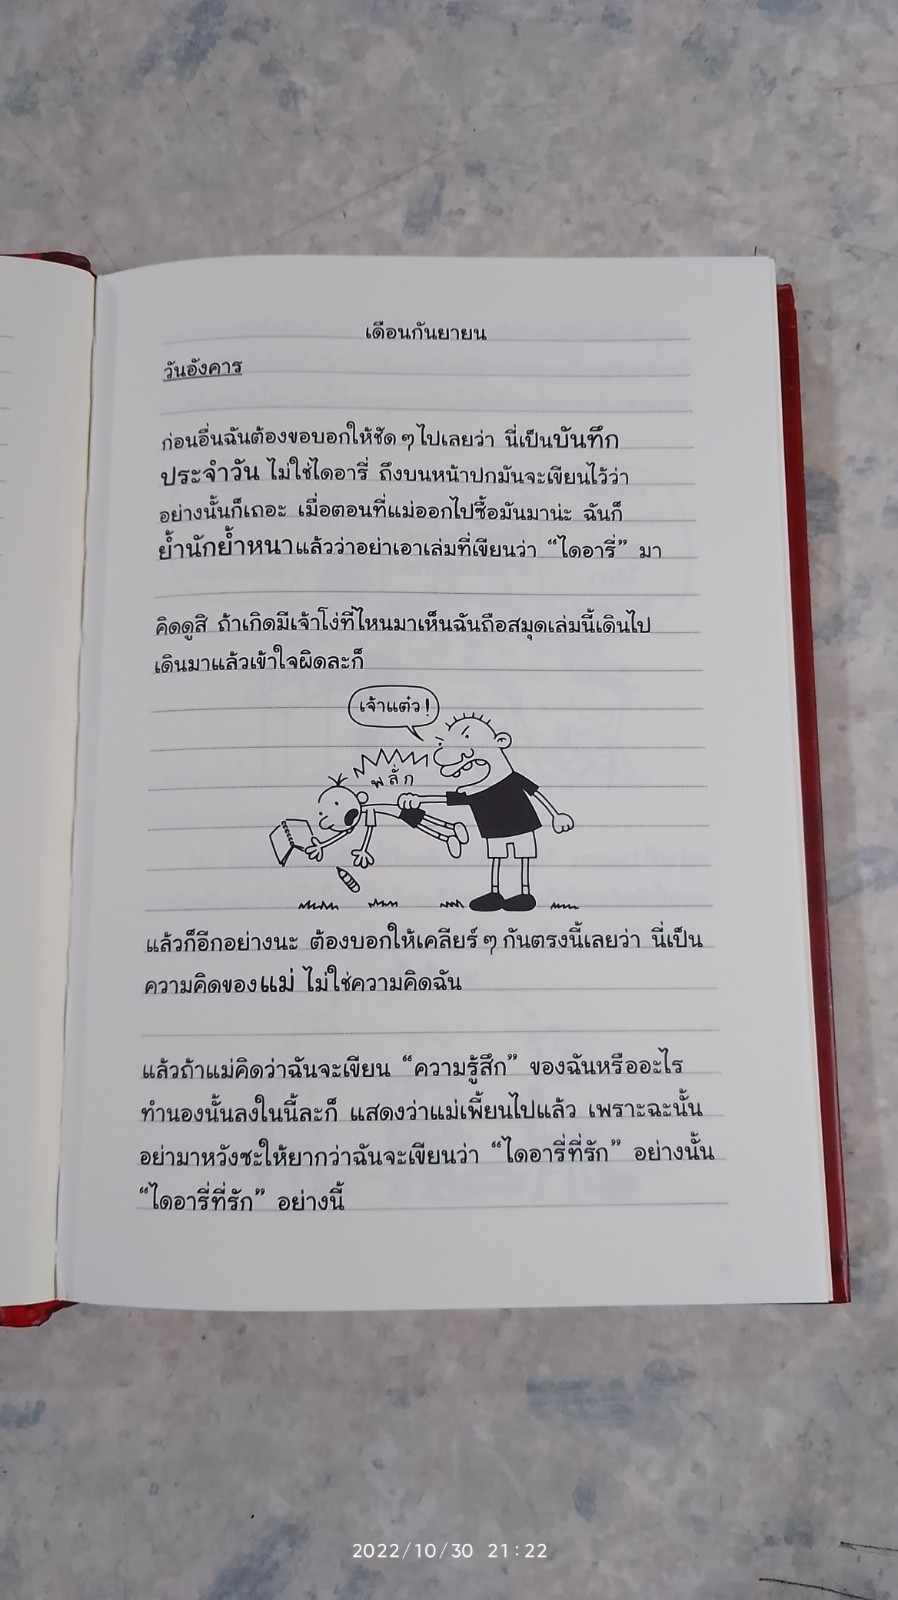 เดือนกันยายน
วันอังคาร
ก่อนอื่นฉันต้องขอบอกให้ชัด ๆ ไปเลยว่า นี่เป็นบันทึก
ประจำวัน ไม่ใช่ไดอารี่ ถึงบนหน้าปกมันจะเขียนไว้ว่า
อย่างนั้นก็เถอะ เมื่อตอนที่แม่ออกไปซื้อมันมาน่ะ ฉันก็
ย้ำนักย้ำหนาแล้วว่าอย่าเอาเล่มที่เขียนว่า “ไดอารี่” มา
คิดดูสิ ถ้าเกิดมีเจ้าโง่ที่ไหนมาเห็นฉันถือสมุดเล่มนี้เดินไป
เดินมาแล้วเข้าใจผิดละก็
เจ้าแต๋ว!
พลั่ก
แล้วก็อีกอย่างนะ ต้องบอกให้เคลียร์ ๆ กันตรงนี้เลยว่า นี่เป็น
ความคิดของแม่ ไม่ใช่ความคิดฉัน
แล้วถ้าแม่คิดว่าฉันจะเขียน “ความรู้สึก” ของฉันหรืออะไร
ทำนองนั้นลงในนี้ละก็ แสดงว่าแม่เพี้ยนไปแล้ว เพราะฉะนั้น
อย่ามาหวังซะให้ยากว่าฉันจะเขียนว่า “ไดอารี่ที่รัก” อย่างนั้น
“ไดอารี่ที่รัก” อย่างนี้
2022/10/30 21:22